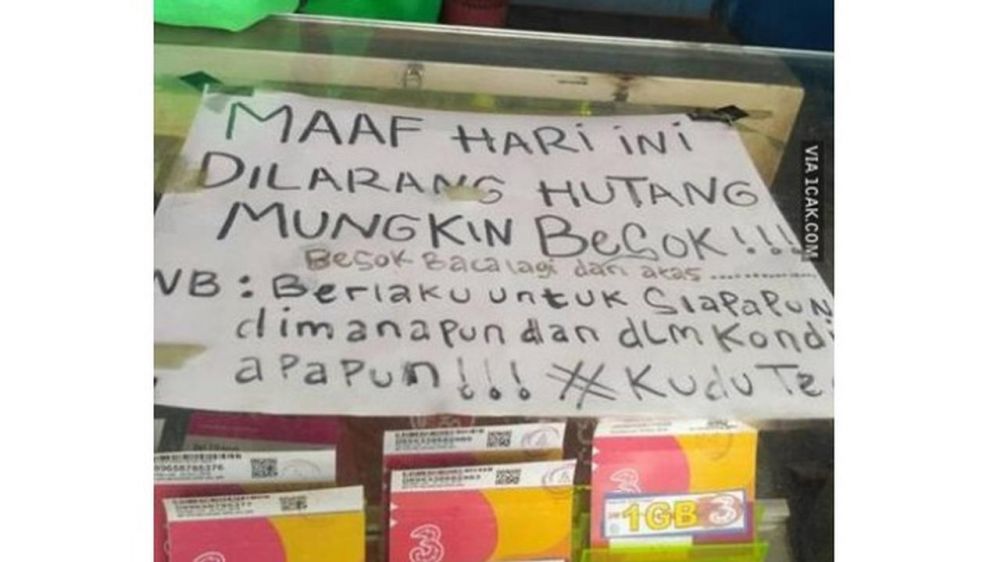 MAAF HARI INI
DILARANG HUTANG
MUNGKIN BESOK!!!
Besok Baca lagi dari atas..............
NB: Berlaku untuk Siapapun
dimanapun dan dlm Kondi
apapun!!! #Kudu Te
VIA 1CAK.COM
3
3
3
1GB 3